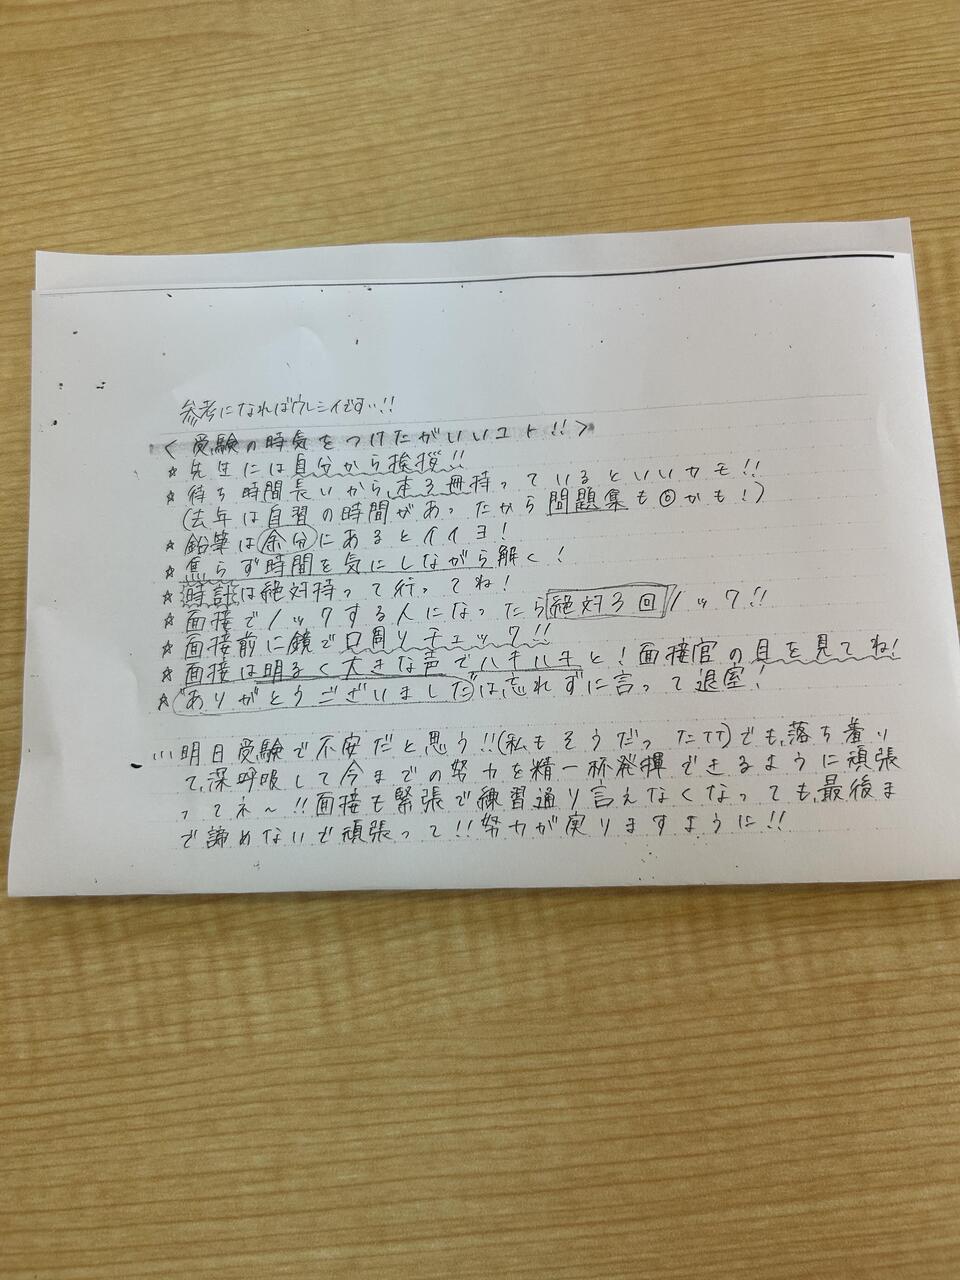 参考になればウレシイです…!!
<受験の時気をつけたがいいコト!!>
☆先生には自分から挨拶!!
☆待ち時間長いから、本3冊持っているといいカモ!!
(去年は自習の時間があったから問題集も◎かも!)
☆鉛筆は余分にあるとイイヨ!
☆焦らず時間を気にしながら解く!
☆時計は絶対持って行ってね!
☆面接でノックする人になったら絶対3回ノック!!
☆面接前に鏡で口周りチェック!!
☆面接は明るく大きな声でハキハキと!面接官の目を見てね!
☆"ありがとうございました"は忘れずに言って退室!
…明日受験で不安だと思う!!(私もそうだったTT)でも、落ち着い
て、深呼吸して今までの努力を精一杯発揮できるように頑張
ってネ~!!面接も緊張で練習通り言えなくなっても、最後ま
で諦めないで頑張って!!努力が実りますように!!